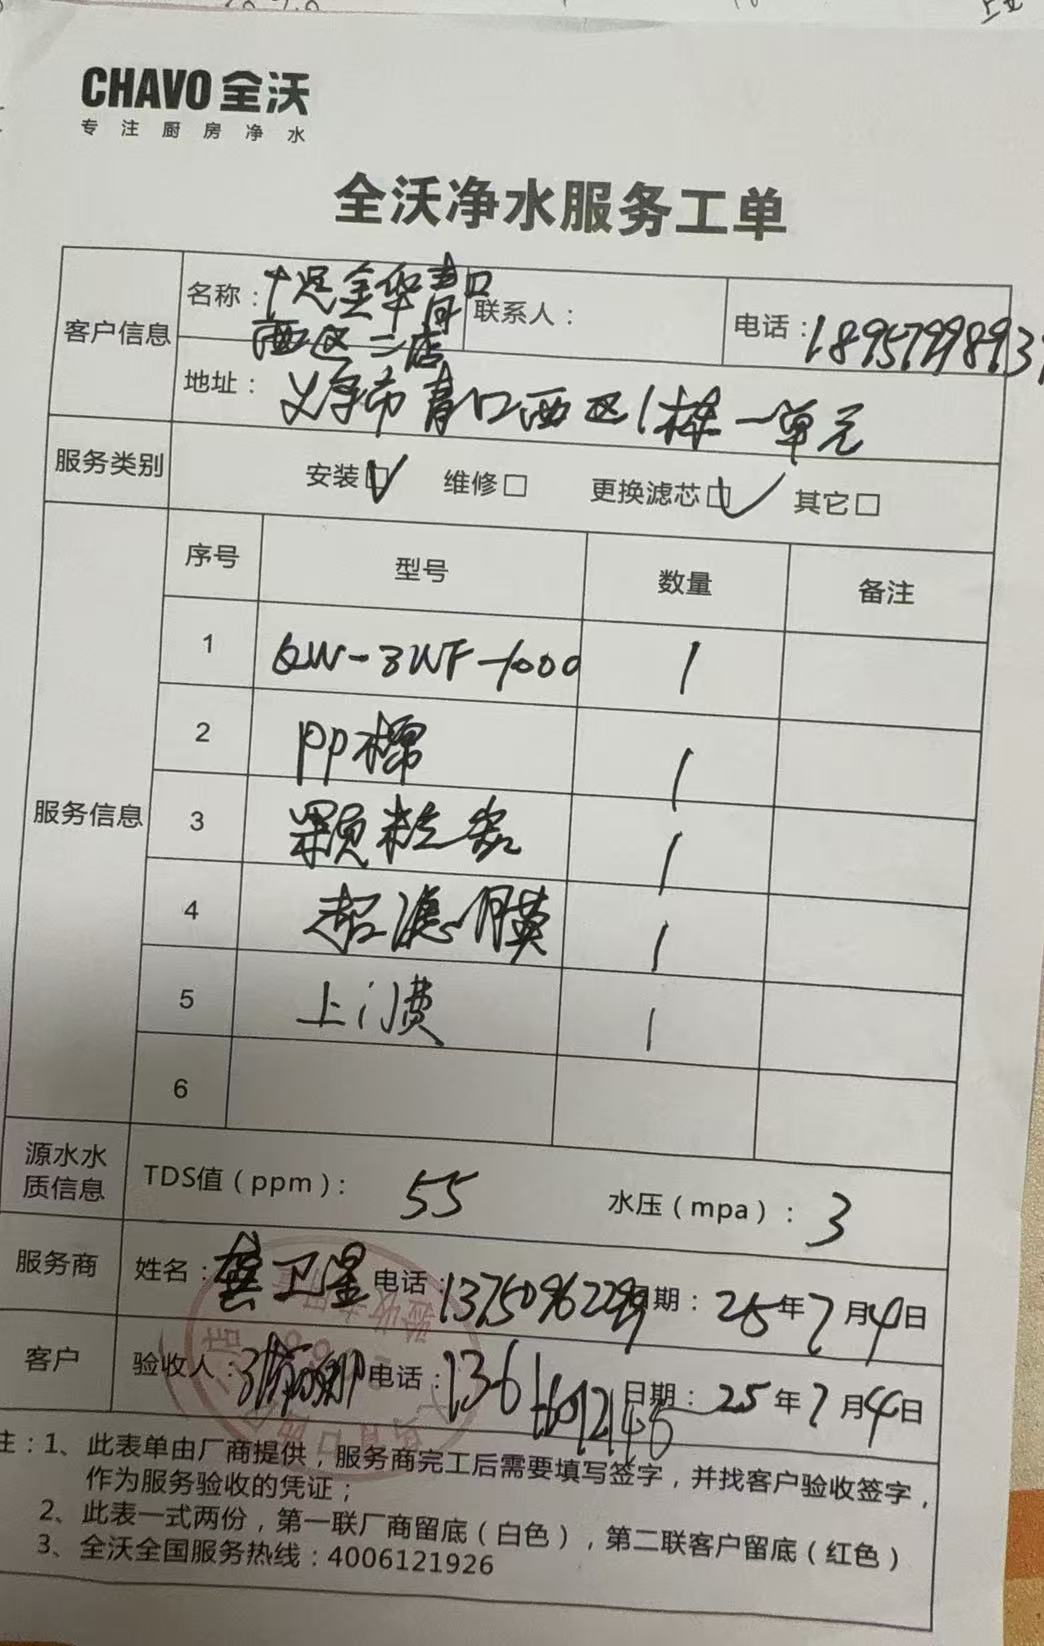 CHAVO 全沃
专注厨房净水
全沃净水服务工单
客户信息
名称：十足金华青口
西区二店
联系人：
电话：1895799893
地址：义乌市青口西区1栋一单元
服务类别
安装☑ 维修□ 更换滤芯☑ 其它□
服务信息
序号 型号 数量 备注
1 QW-3WF-1000 1
2 PP棉 1
3 颗粒炭 1
4 超滤膜 1
5 上门费 1
6
源水水质信息
TDS值（ppm）：55 水压（mpa）：3
服务商 姓名：龚卫星 电话：13750962299 日期：25年7月4日
客户 验收人： 电话： 日期：25年7月4日
注：1、此表单由厂商提供，服务商完工后需要填写签字，并找客户验收签字，
作为服务验收的凭证；
2、此表一式两份，第一联厂商留底（白色），第二联客户留底（红色）
3、全沃全国服务热线：4006121926